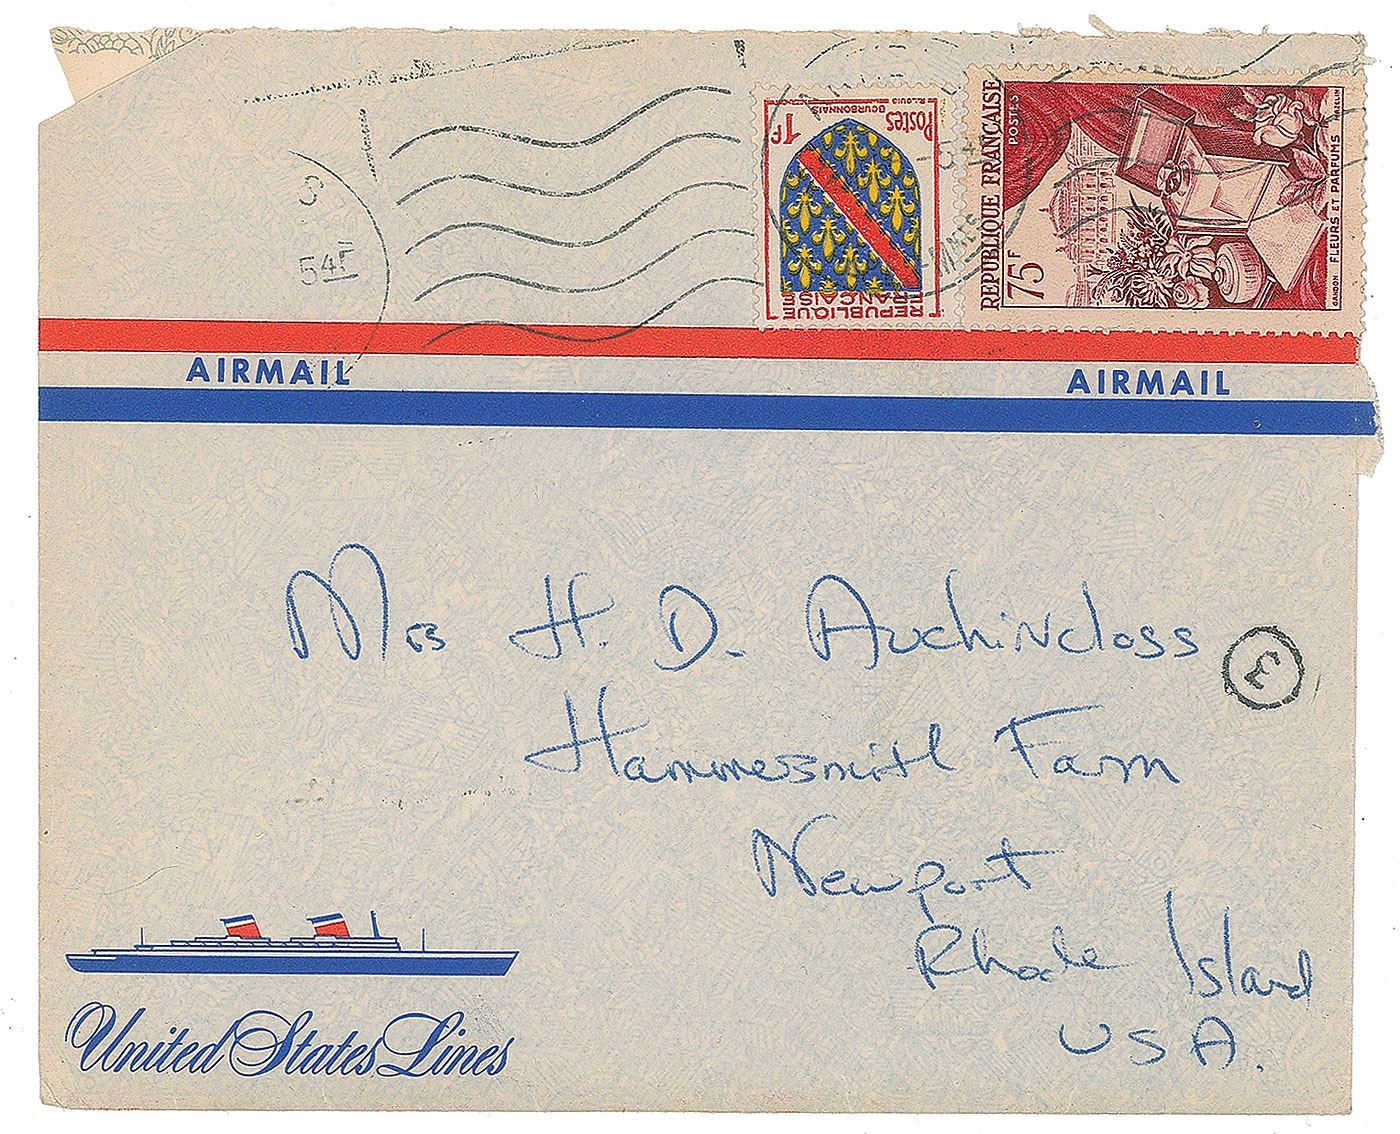 1F
Postes
BOURBONNAIS
R.LOUIS
REPUBLIQUE
FRANÇAISE
REPUBLIQUE FRANÇAISE
POSTES
75F
GANDON FLEURS ET PARFUMS MAZELIN
S
54F
AIRMAIL AIRMAIL
Mrs H. D. Auchincloss
3
Hammersmith Farm
Newport
Rhode Island
USA.
United States Lines